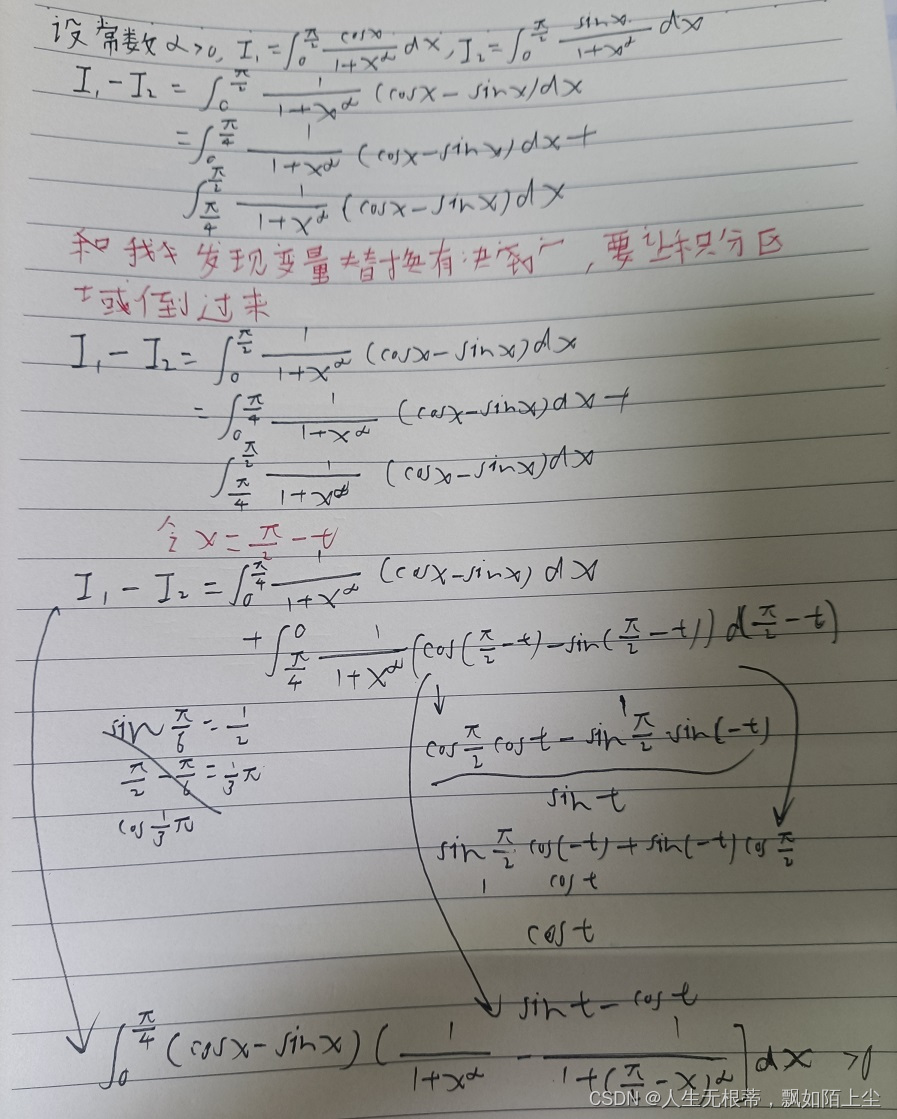 设常数α>0, I₁=∫₀^{π/2} cosx/(1+x^α) dx, I₂=∫₀^{π/2} sinx/(1+x^α) dx
I₁-I₂ = ∫₀^{π/2} 1/(1+x^α) (cosx-sinx)dx
=∫₀^{π/4} 1/(1+x^α) (cosx-sinx)dx+
∫_{π/4}^{π/2} 1/(1+x^α) (cosx-sinx)dx
发现变量替换有, 要让积分区
域倒过来
I₁-I₂= ∫₀^{π/2} 1/(1+x^α) (cosx-sinx)dx
= ∫₀^{π/4} 1/(1+x^α) (cosx-sinx)dx+
∫_{π/4}^{π/2} 1/(1+x^α) (cosx-sinx)dx
令 x=π/2-t
I₁-I₂=∫₀^{π/4} 1/(1+x^α) (cosx-sinx)dx
+∫_{π/4}^{0} 1/(1+x^α) (cos(π/2-t)-sin(π/2-t)) d(π/2-t)
sin π/6=1/2
π/2-π/6=1/3π
cos 1/3π
1
cos π/2 cost-sin π/2 sin(-t)
sint
sin π/2 cos(-t)+sin(-t)cos π/2
1 cost
cost
sint-cost
∫₀^{π/4} (cosx-sinx)(1/(1+x^α) - 1/(1+(π/2-x)^α)]dx >0
CSDN @人生无根蒂，飘如陌上尘